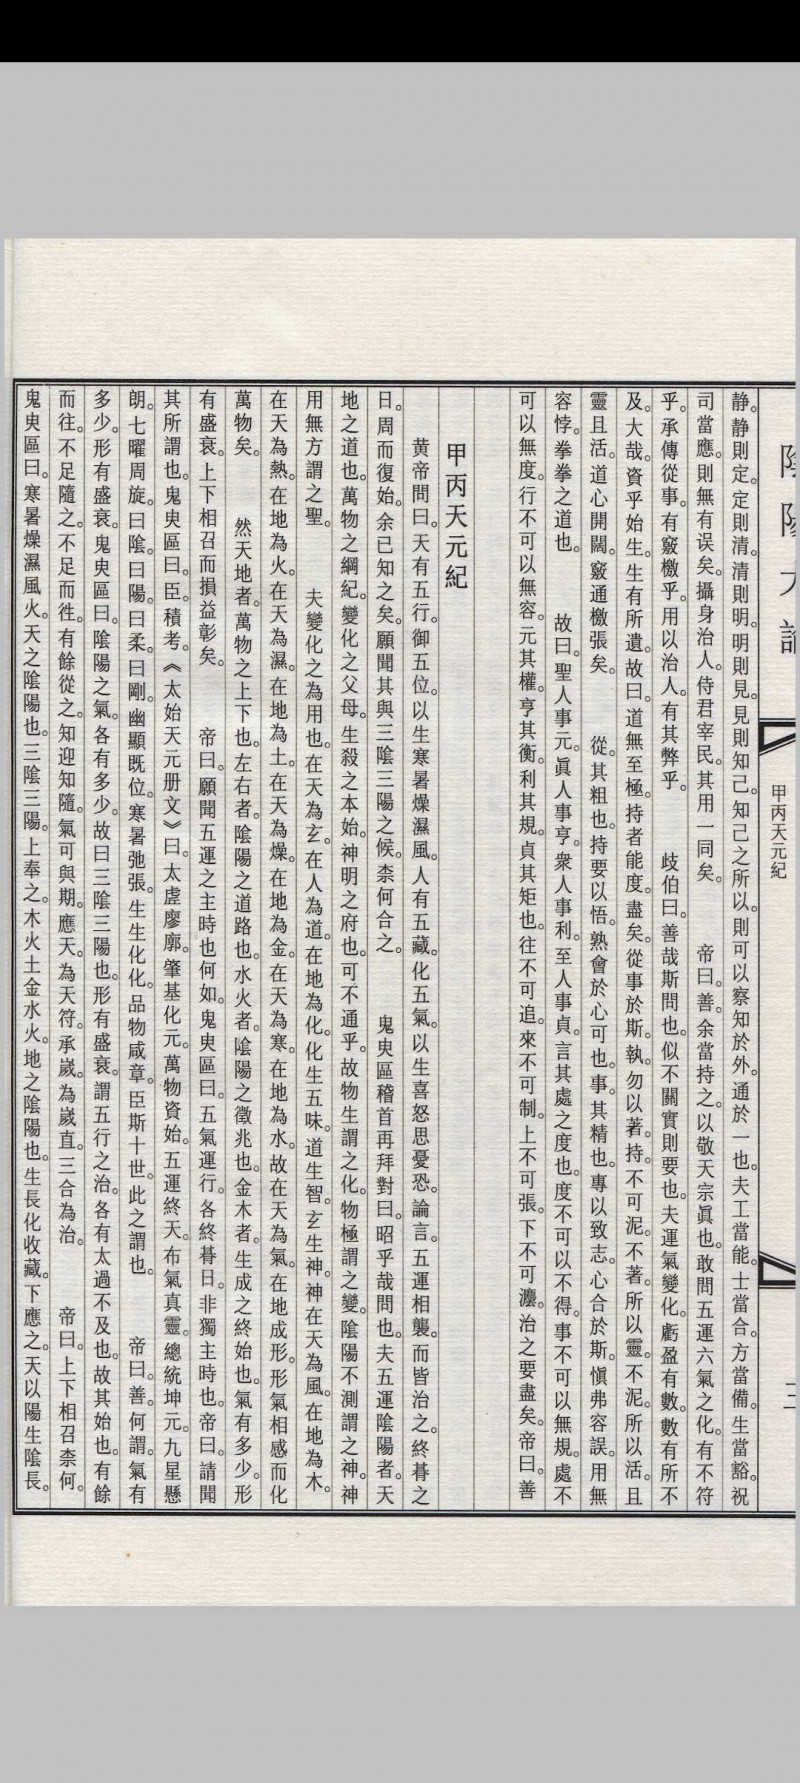 陰陽大論
甲丙天元紀
三
静。静則定。定則清。清則明。明則見。見則知己。知己之所以。則可以察知於外。通於一也。夫工當能。士當合。方當備。生當豁。祝
司當應。則無有误矣。攝身治人。侍君宰民。其用一同矣。　帝曰。善。余當持之。以敬天宗眞也。敢問五運六氣之化。有不符
乎。承傳從事。有竅檄乎。用以治人。有其弊乎。　歧伯曰。善哉斯問也。似不關實則要也。夫運氣變化。虧盈有數。數有所不
及。大哉。資乎始生。生有所遺。故曰。道無至極。持者能度。盡矣。從事於斯。執。勿以著。持。不可泥。不著。所以靈。不泥。所以活。且
靈且活。道心開闊。竅通檄張矣。　從。其粗也。持要以悟。熟會於心可也。事。其精也。專以致志。心合於斯。愼弗容誤。用無
容悖。拳拳之道也。　故曰。聖人事元。眞人事亨。衆人事利。至人事貞。言其處之度也。度不可以不得。事不可以無規。處不
可以無度。行不可以無容。元其權。亨其衡。利其規。貞其矩也。往不可追。來不可制。上不可張。下不可瀍。治之要盡矣。帝曰。善
甲丙天元紀
黄帝問曰。天有五行。御五位。以生寒暑燥濕風。人有五藏。化五氣。以生喜怒思憂恐。論言。五運相襲。而皆治之。終朞之
日。周而復始。余已知之矣。願聞其與三陰三陽之候。柰何合之。　鬼臾區稽首再拜對曰。昭乎哉問也。夫五運陰陽者。天
地之道也。萬物之綱紀。變化之父母。生殺之本始。神明之府也。可不通乎。故物生謂之化。物極謂之變。陰陽不測謂之神。神
用無方謂之聖。　夫變化之為用也。在天為玄。在人為道。在地為化。化生五味。道生智。玄生神。神在天為風。在地為木。
在天為熱。在地為火。在天為濕。在地為土。在天為燥。在地為金。在天為寒。在地為水。故在天為氣。在地成形。形氣相感而化
萬物矣。　然天地者。萬物之上下也。左右者。陰陽之道路也。水火者。陰陽之徵兆也。金木者。生成之終始也。氣有多少。形
有盛衰。上下相召而損益彰矣。　帝曰。願聞五運之主時也何如。鬼臾區曰。五氣運行。各終朞日。非獨主時也。帝曰。請聞
其所謂也。鬼臾區曰。臣。積考。《太始天元册文》曰。太虛廖廓。肇基化元。萬物資始。五運終天。布氣真靈。總統坤元。九星懸
朗。七曜周旋。曰陰。曰陽。曰柔。曰剛。幽顯既位。寒暑弛張。生生化化。品物咸章。臣斯十世。此之謂也。　帝曰。善。何謂。氣有
多少。形有盛衰。鬼臾區曰。陰陽之氣。各有多少。故曰三陰三陽也。形有盛衰。謂五行之治。各有太過不及也。故其始也。有餘
而往。不足隨之。不足而徃。有餘從之。知迎知隨。氣可與期。應天。為天符。承嵗。為嵗直。三合為治。　帝曰。上下相召柰何。
鬼臾區曰。寒暑燥濕風火。天之陰陽也。三陰三陽。上奉之。木火土金水火。地之陰陽也。生長化收藏。下應之。天以陽生陰長。